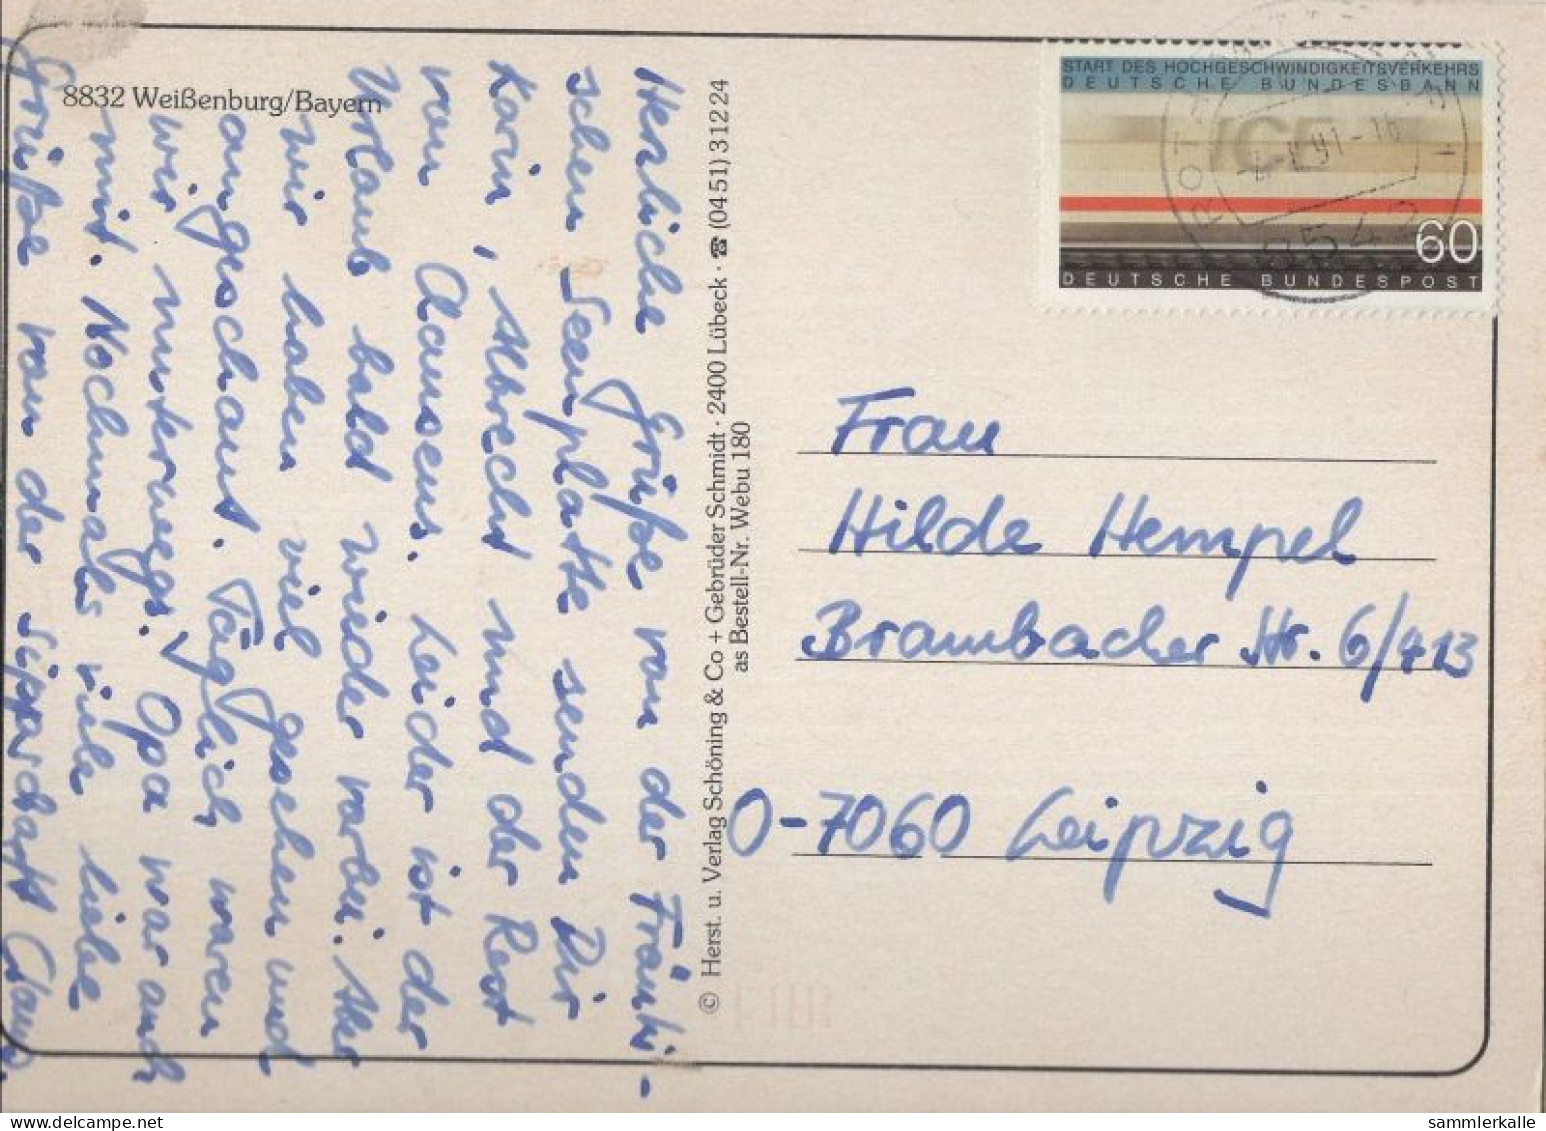 8832 Weißenburg/Bayern
Herzliche Grüße von der Fränki-
schen Seenplatte senden Dir
Karin, Albrecht und der Rest
von Clausens. Leider ist der
Urlaub bald wieder vorbei. Aber
wir haben viel gesehen und
angeschaut. Täglich waren
wir unterwegs. Opa war auch
mit. Nochmals viele liebe
Grüße von der Sippschaft
© Herst. u. Verlag Schöning & Co + Gebrüder Schmidt · 2400 Lübeck · ☎ (04 51) 3 12 24
as Bestell-Nr. Webu 180
START DES HOCHGESCHWINDIGKEITSVERKEHRS
DEUTSCHE BUNDESBAHN
ICE
60
DEUTSCHE BUNDESPOST
8542
Frau
Hilde Hempel
Brambacher Str. 6/413
O-7060 Leipzig
sammlerkalle